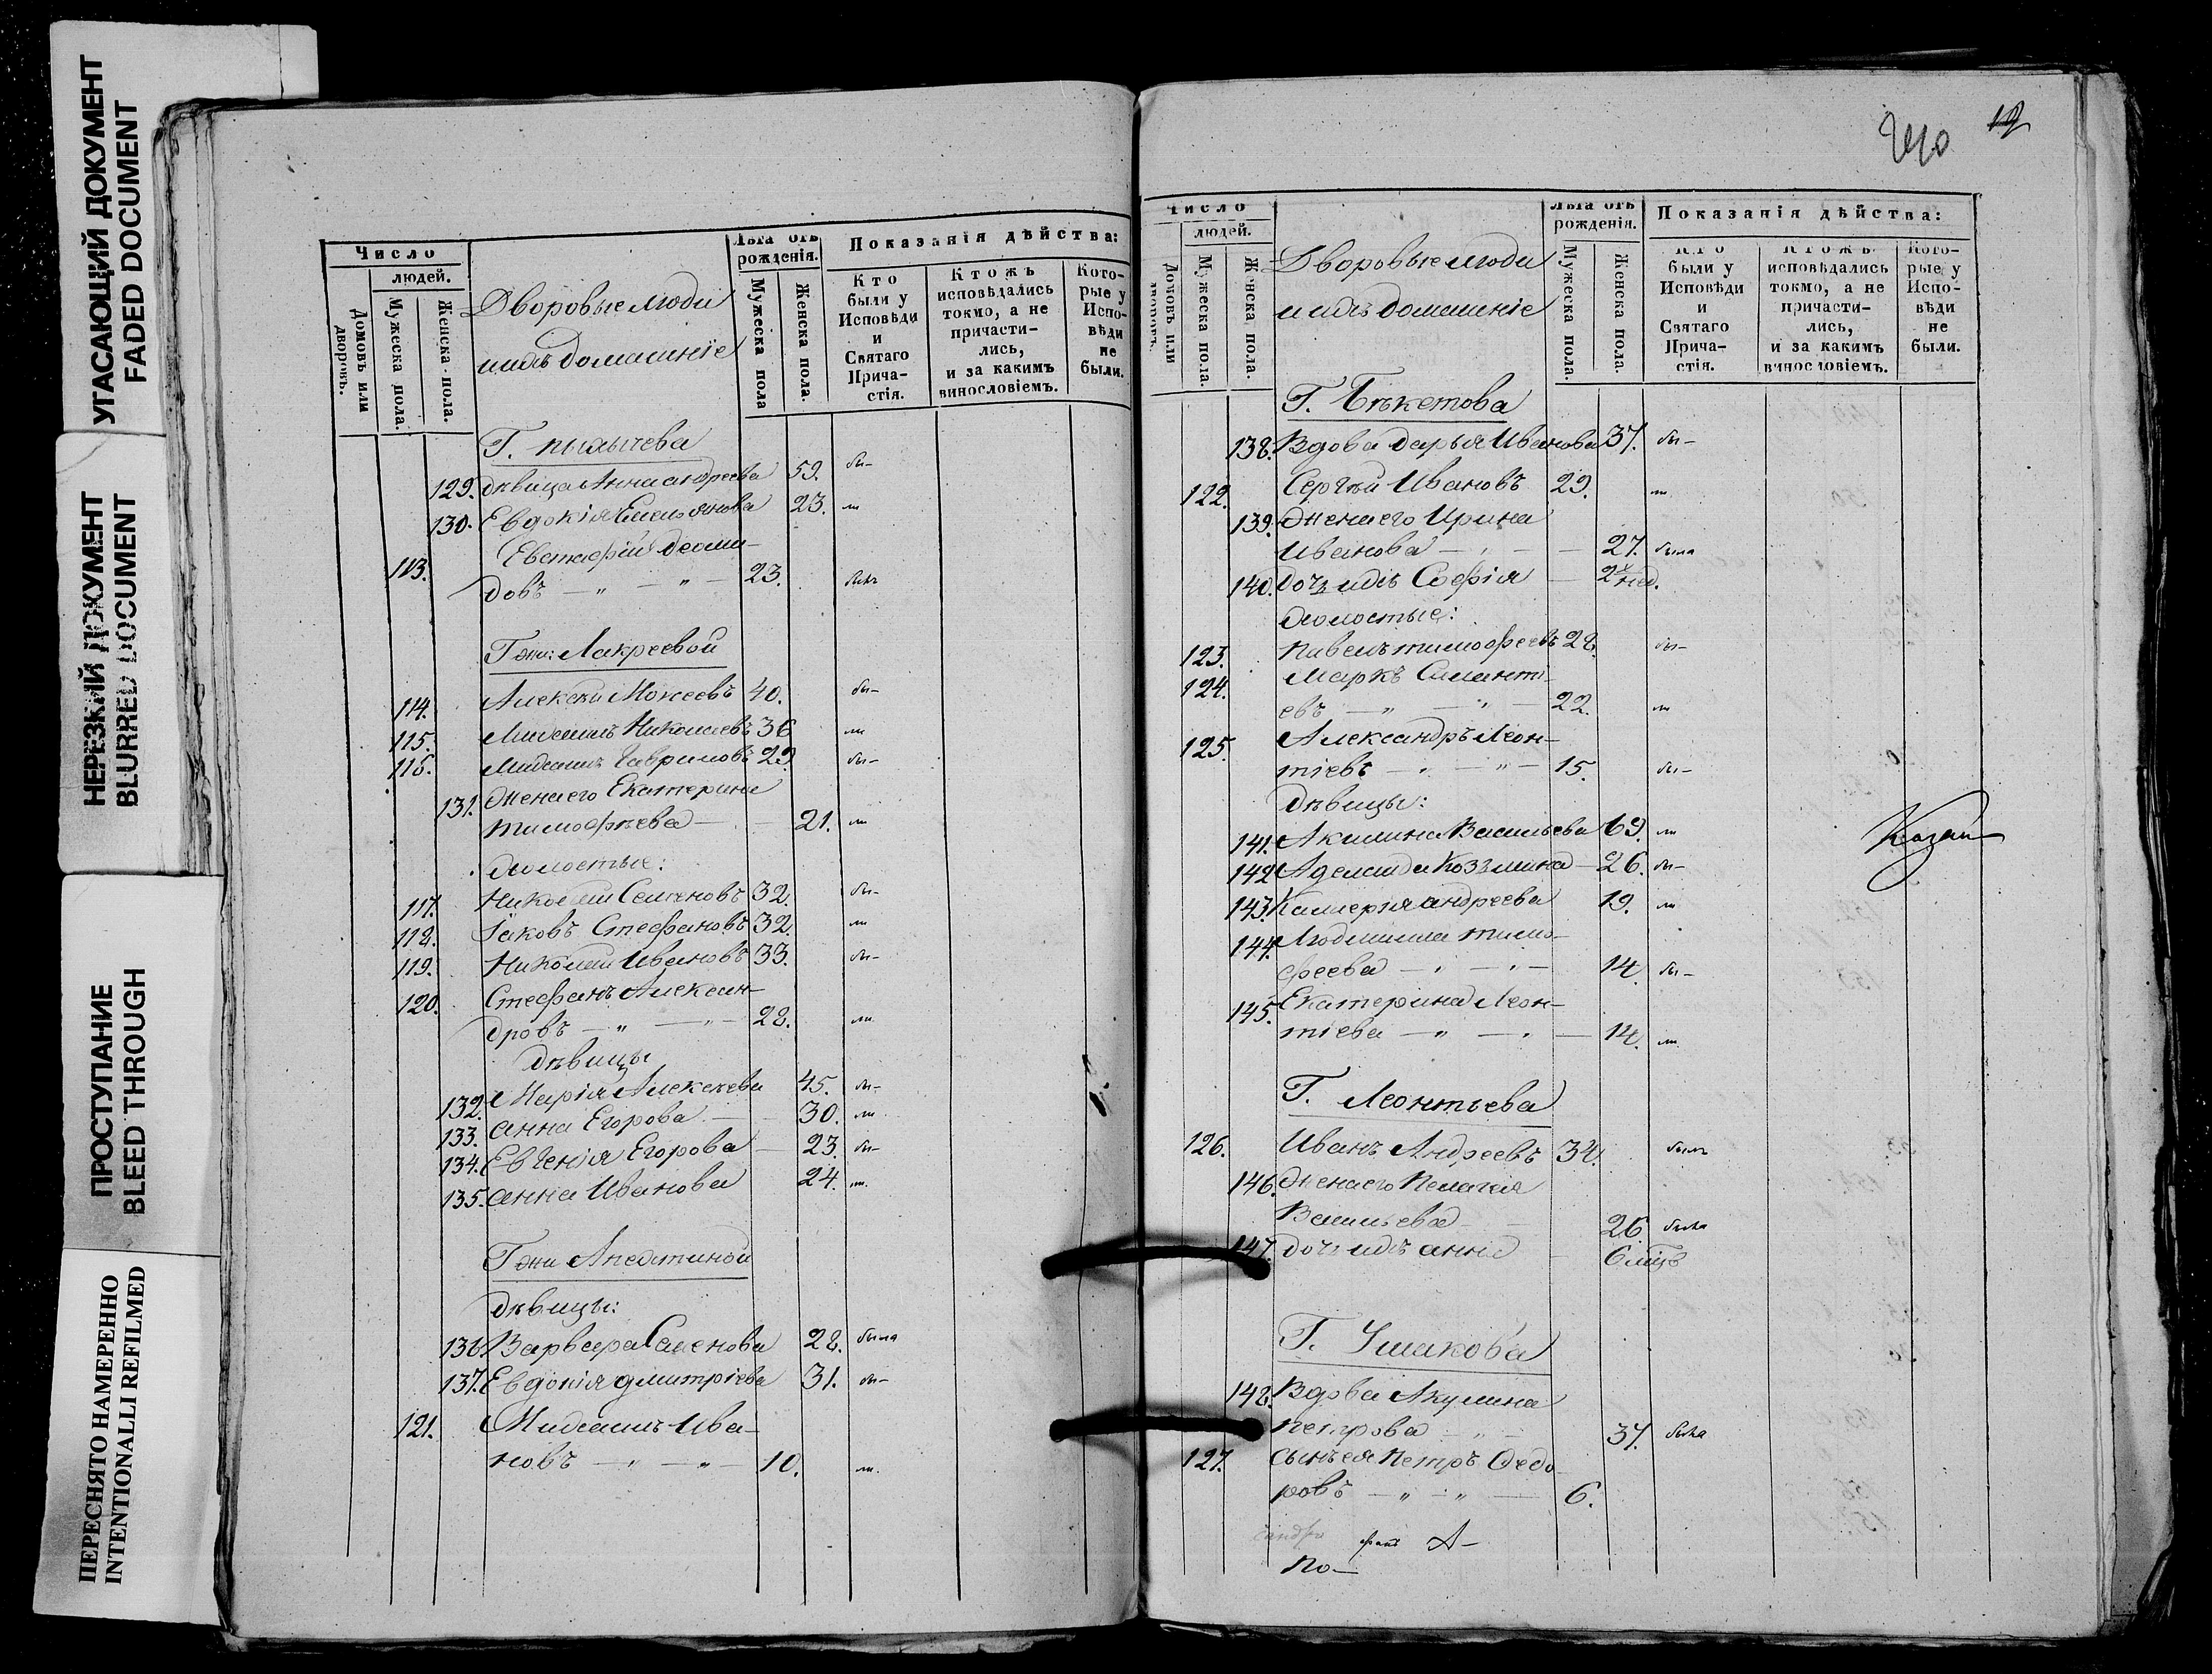 УГАСАЮЩИЙ ДОКУМЕНТ
FADED DOCUMENT
НЕРЕЗКИЙ ДОКУМЕНТ
BLURRED DOCUMENT
ПРОСТУПАНИЕ
BLEED THROUGH
ПЕРЕСНЯТО НАМЕРЕННО
INTENTIONALLI REFILMED
Число
людей.
Домовъ или дворовъ.
Мужеска пола.
Женска пола.
Дворовые люди
и ихъ домашніе
Лѣта отъ рожденія.
Мужеска пола
Женска пола.
Показанія дѣйства:
Кто были у Исповѣди и Святаго Прича-стія.
Ктожъ исповѣдались токмо, а не причасти-лись, и за какимъ винословіемъ.
Кото-рые у Испо-вѣди не были.
Г.
129. Дѣвица Анна Андреева 59. бы-
130. Евдокія Емельянова 23. ла
113. Евстафій Деоми-
довъ — " — " — 23. былъ
Гжи: Лакреевой
114. Алексѣй Мокеевъ 40. бы-
115. Михаилъ Николаевъ 36 ли
116. Михаилъ Гавриловъ 29. бы-
131. Жена его Екатерина
Тимофѣева — 21. ли
Холостые:
117. Николай Семеновъ 32. бы-
118. Іаковъ Стефановъ 32. ли
119. Николай Ивановъ 33. бы-
120. Стефанъ Алексан-
дровъ — " — " — 28. ли
Дѣвицы
132. Марія Алексѣева 45. бы-
133. Анна Егорова — 30. ли
134. Евгенія Егорова — 23. бы-
135. Анна Иванова 24. ли.
Гжи
Дѣвицы:
136. Варвара Семенова 28. была
137. Евдокія Дмитріева 31. бы-
121. Михаилъ Ива-
новъ — " — " — 10. ли.
12
Число
людей.
Домовъ или дворовъ.
Мужеска пола.
Женска пола.
Дворовые люди
и ихъ домашніе
Лѣта отъ рожденія.
Мужеска пола.
Женска пола.
Показанія дѣйства:
Кто были у Исповѣди и Святаго Прича-стія.
Ктожъ исповѣдались токмо, а не причасти-лись, и за какимъ винословіемъ.
Кото-рые у Испо-вѣди не были.
Г. Бѣкетова
138. Вдова Дарья Иванова 37. бы-
122. Сергѣй Ивановъ 29. ли
139. Жена его Ирина
Иванова — " — — 27. была
140. Дочь ихъ Софія — 2х нед.
Холостые:
123. Павелъ Тимофеевъ 28. бы-
124. Маркъ
евъ — " — " — 22. ли
125. Александръ Леон-
тіевъ — " — " — 15. бы-
Дѣвицы:
141. Акилина Васильева 69. ли
142. Аделаида Козьмина — 26. бы-
143. Калерія Андреева 19. ли
144. Людмилла Тимо-
феева — " — " — 14. бы-
145. Екатерина Леон-
тіева — " — " — 14. ли.
Г. Леонтьева
126. Иванъ Андреевъ 34. былъ
146. Жена его Пелагея
Васильева — 26. была
147. Дочь ихъ Анна — 6 мцъ
Г. Ушакова
148. Вдова Акулина
Петрова — " — 37. была
127. Сынъ ея Петръ Федо-
ровъ — " — " — 6.
А-
По-